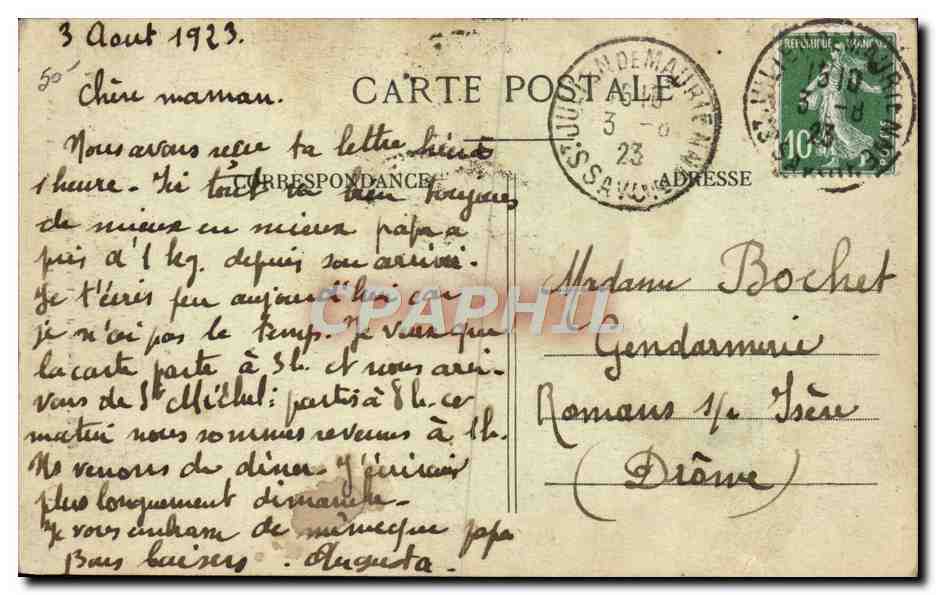 3 Aout 1923.
50
CARTE POSTALE
Chère maman.
Nous avons reçu ta lettre hier à
1 heure. Ici tout va bien toujours
CORRESPONDANCE
ADRESSE
de mieux en mieux papa a
pris d'1 kg. depuis son arrivée.
Je t'écris peu aujourd'hui car
je n'ai pas le temps. Je veux que
la carte parte à 3h. et nous arri-
vons de St Michel: partis à 8h. ce
matin nous sommes revenues à 1h.
Ns venons de diner. J'écrirai
plus longuement dimanche.
Je vous embrasse de même que papa
Bons baisers. Augusta.
Madame Bochet
Gendarmerie
Romans s/ Isère
(Drôme)
ST JULIEN DE MAURIENNE
15 10
3 -8
23
SAVOIE
REPUBLIQUE FRANÇAISE
10
ST JULIEN DE MAURIENNE
15 10
3 -8
23
CPAPHIL